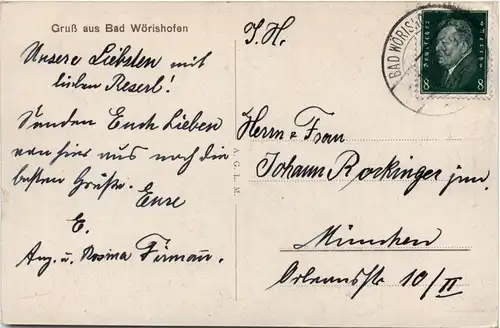 Gruß aus Bad Wörishofen
Unsere Liebsten mit
lieben Reserl!
Senden Euch Lieben
von hier aus noch die
besten Grüße.
Eure
E.
Ang. u. Rosina Firmann.
A. G. L. M.
T. H.
BAD WÖRISH
Deutsches Reich
8 8
Herrn u Frau
Johann Rockinger jun.
München
Orleansstr 10/II